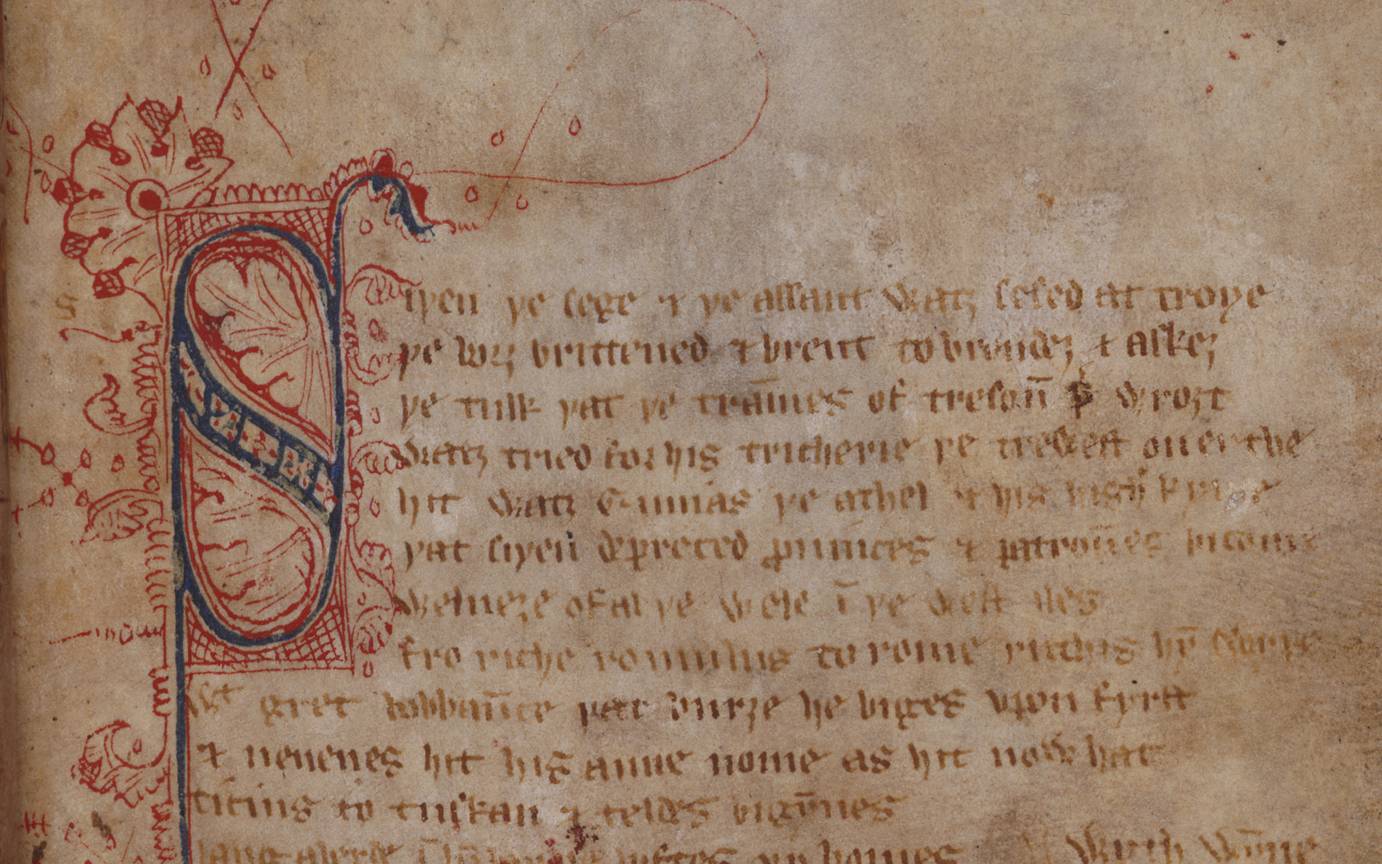 Siþen þe sege & þe assaut watz sesed at troye
þe borȝ brittened & brent to brondeȝ & askez
þe tulk þat þe tra̅mes of tresou̅n þ̵ wroȝt
Watz tried for his tricherie þe trewest on erthe
hit watz Ennias þe athel & his highe kynde
þat siþen dep̲reced p̲uinces & patrou̅nes bicome
Welneȝe of al þe wele i̅ þe west iles
fro riche romulus to rome ricchis hy̅ swyþe
Wᵗ gret bobbau̅ce þat burȝe he biges vpon fyrst
& neuenes hit his aune nome as hit now hat
ticius to tuskan & teldes bigy̅nes
langaberde i̅ lyftes vp homes